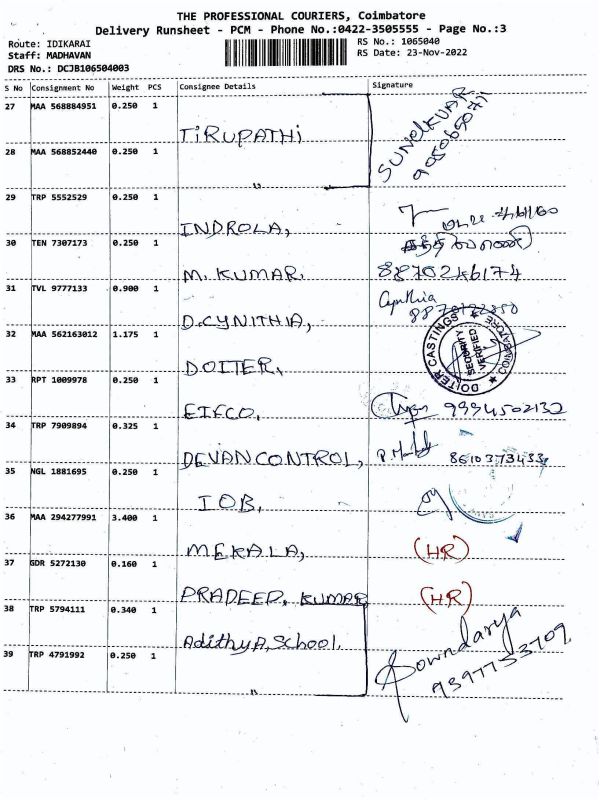 THE PROFESSIONAL COURIERS, Coimbatore
Delivery Runsheet - PCM - Phone No.:0422-3505555 - Page No.:3
Route: IDIKARAI
RS No.: 1065040
Staff: MADHAVAN
RS Date: 23-Nov-2022
DRS No.: DCJB106504003
S No Consignment No Weight PCS Consignee Details Signature
27 MAA 568884951 0.250 1
TIRUPATHI
28 MAA 568852440 0.250 1
29 TRP 5552529 0.250 1
INDROLA,
30 TEN 7307173 0.250 1
M. KUMAR.
31 TVL 9777133 0.900 1
Cynthia
D.CYNITHIA,
32 MAA 562163012 1.175 1
DOITER,
DOITER CASTINGS ★ COIMBATORE ★
SECURITY
VERIFIED
33 RPT 1009978 0.250 1
EIFCO, 9994502132
34 TRP 7909894 0.325 1
DEVAN CONTROL,
35 NGL 1881695 0.250 1
IOB,
36 MAA 294277991 3.400 1
MEKALA, (HR)
37 GDR 5272130 0.160 1
PRADEEP. KUMAR, (HR)
38 TRP 5794111 0.340 1
AdithyA, School.
Sowndarya
39 TRP 4791992 0.250 1